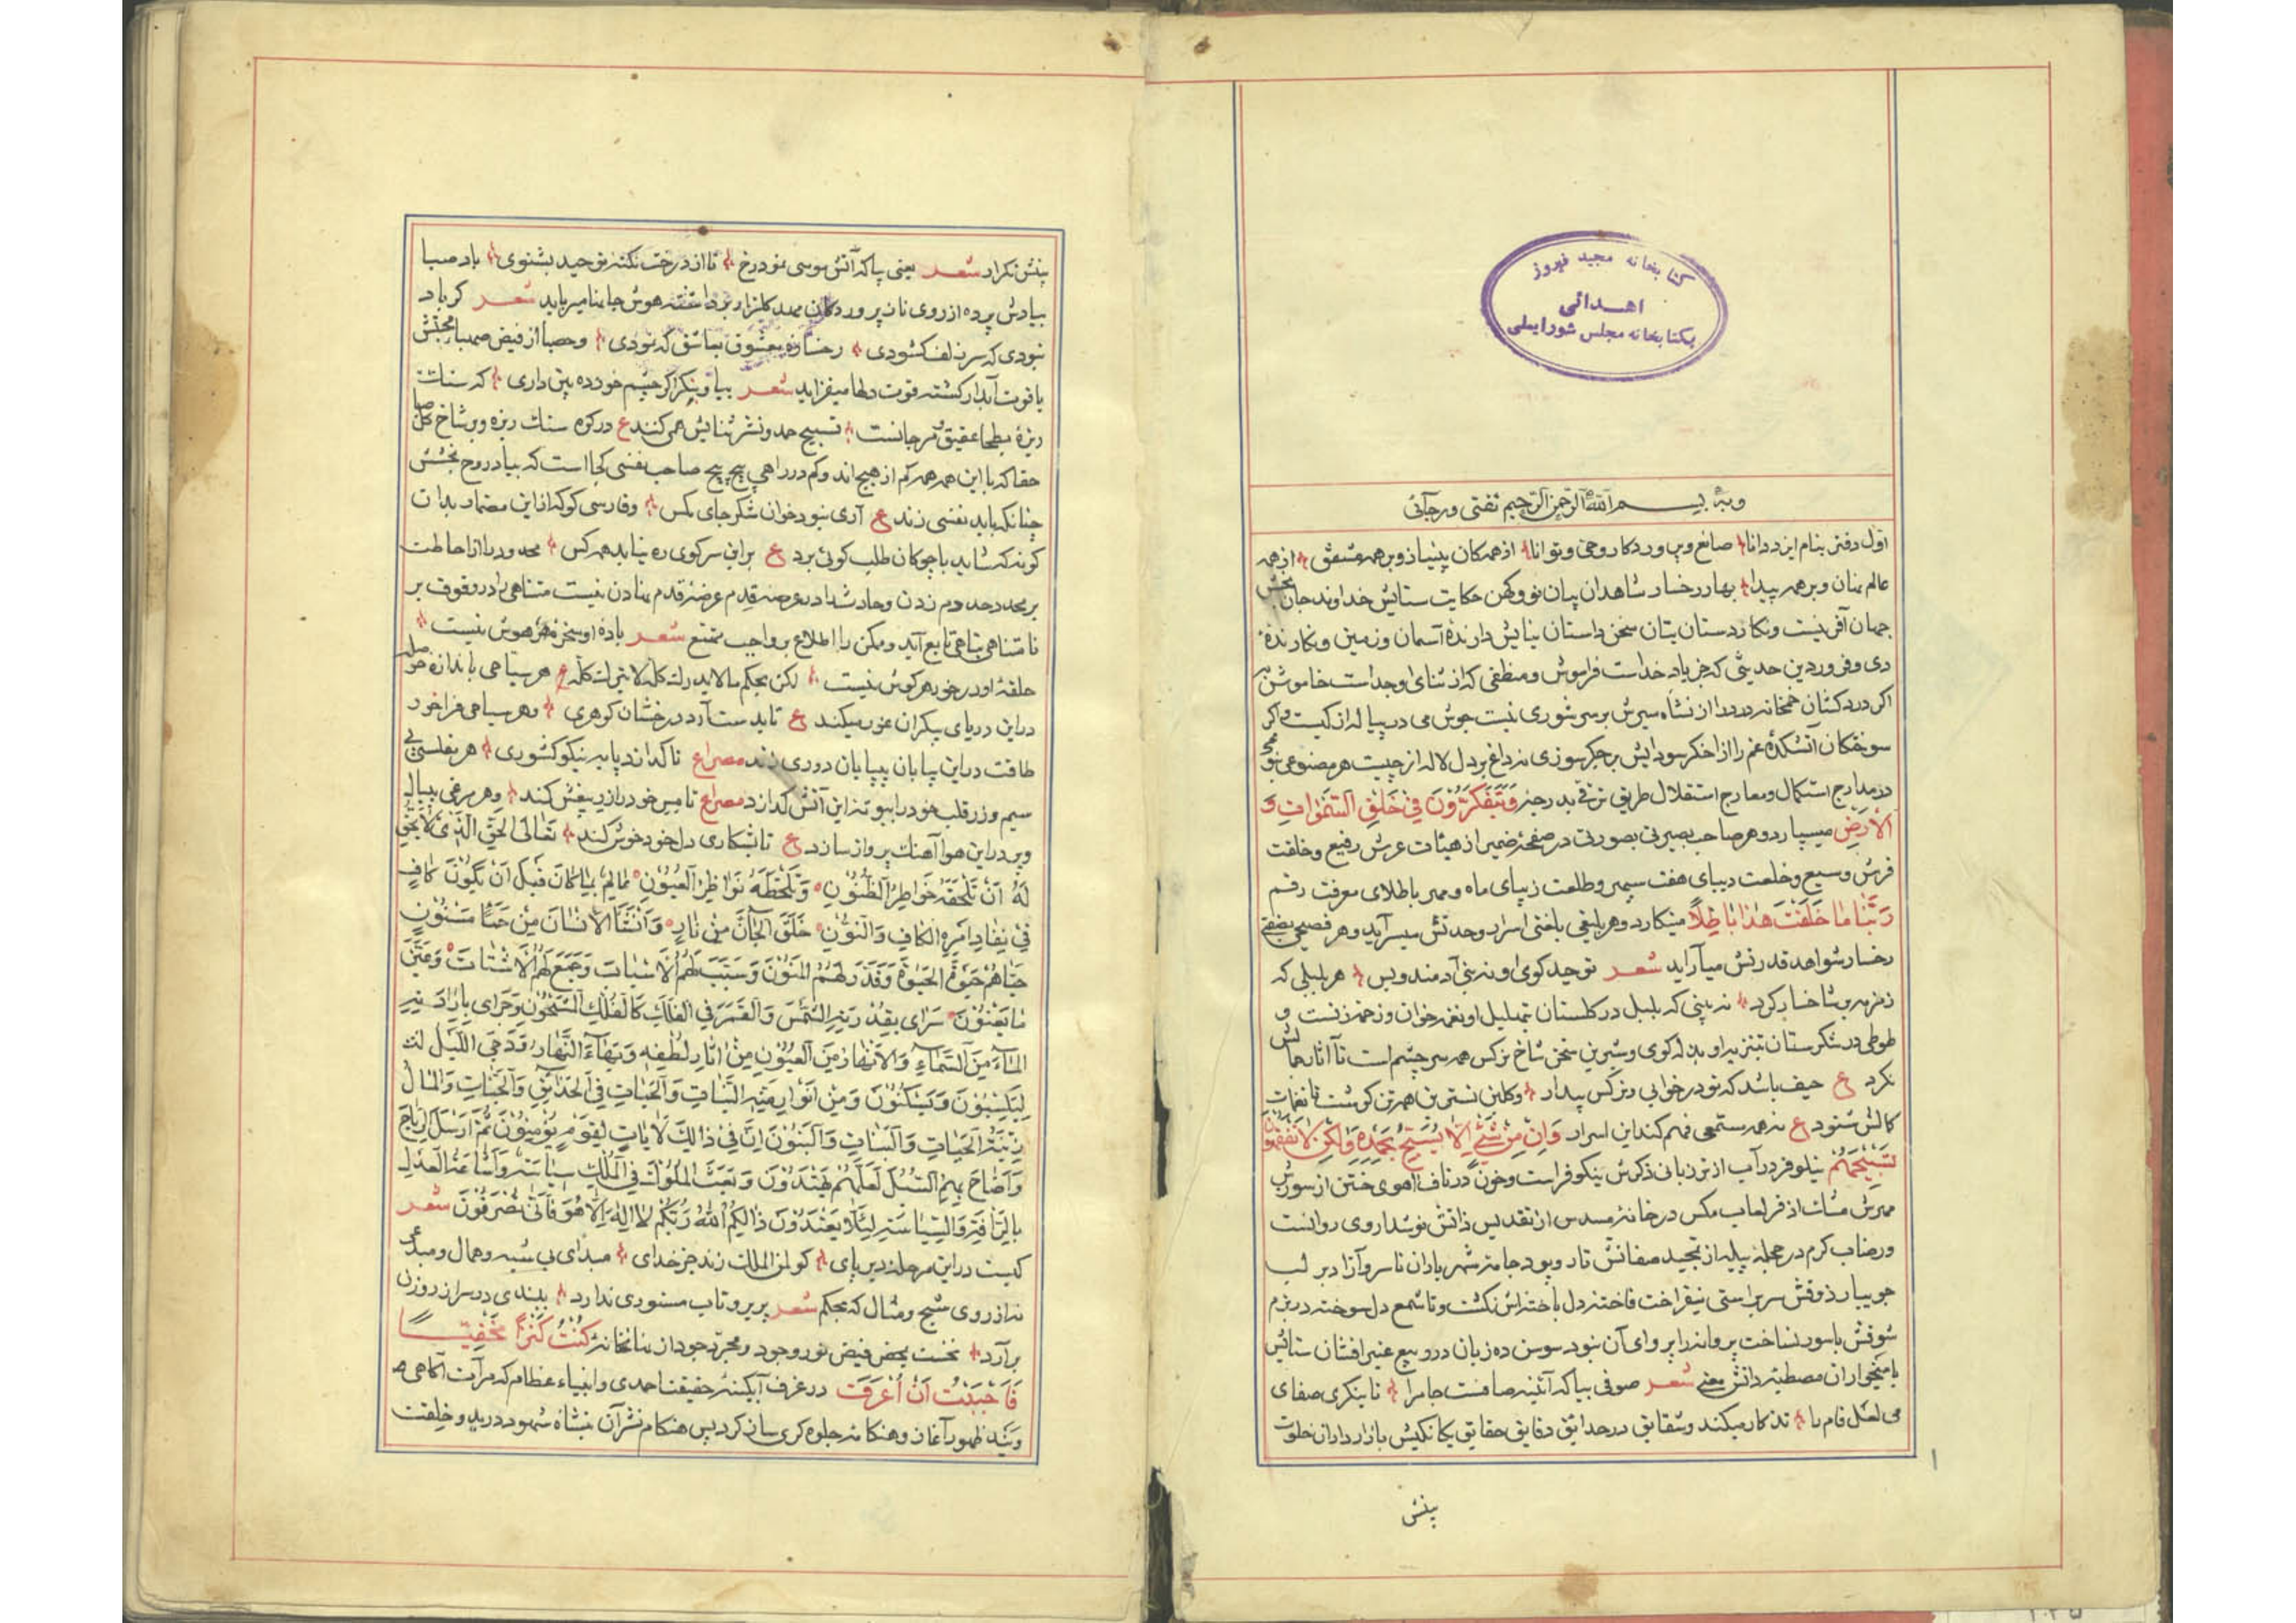 کتابخانه مجید فیروز
اهدائی
بکتابخانه مجلس شورایملی
وبه بسم الله الرحمن الرحیم ثقتی ورجآئی
اوّل دفتر بنام ایزد دانا صانع وپروردکار وحیّ وتوانا از همکان بینیاز وبرهمه مشفق از همه
عالم نهان وبرهمه پیدا بهار رخسار شاهدان بیان نو وکهن حکایت ستایش خداوند جان بخش
جهان آفرینست ونکار دستان بتان سخن داستان نیایش دارندۀ آسمان وزمین ونکارندۀ
دی وفروردین حدیثی که جز یاد خداست فراموش ومنطقی که از ثنای او جداست خاموش به
اکر دردکشان خمخانه درد را از نشاه سیرش بر سر شوری نیست جوش می در پیاله از کیست واکر
سوختکان آتشکدۀ غم را از اخکر سودایش بر جکر سوزی نه داغ بر دل لاله از چیست هر مصنوعی
در مدارج استکمال ومعارج استقلال طریق ترقی بدرجۀ وَیَتَفَکَّرُونَ فِی خَلْقِ السَّمٰوَاتِ وَ
الْاَرْضِ میسپارد وهر صاحب بصیرتی بصورتی در صفحۀ ضمیر از هیئات عرش رفیع وخلقت
فرش وسیع وخلعت دیبای هفت سپهر وطلعت زیبای ماه ومهر با طلای معرفت رقم
رَبَّنَا مَا خَلَقْتَ هٰذَا بَاطِلًا مینکارد وهر بلیغی بلغتی اسرار وحدتش میسرآید وهر فصیحی بصفتی
رخسار شواهد قدرتش میآراید شعر توحید کوی او نه بنی آدمند وبس هر بلبلی که
زمزمه بر شاخسار کرد نه بینی که بلبل در کلستان بتهلیل او نغمه خوان وزخمه زنست و
طوطی در شکرستان تنزیه او بذله کوی وشیرین سخن شاخ نرکس همه سر چشم است تا آثار جمالش
نکرد ع حیف باشد که تو در خوابی ونرکس بیدار وکلبن نسترین همه تن کوشست تا نغمات
کمالش شنود ع نه همه مستمعی فهم کند این اسرار وَاِنْ مِنْ شَیْءٍ اِلَّا یُسَبِّحُ بِحَمْدِهِ وَلٰکِنْ لَا تَفْقَهُونَ
تَسْبِیحَهُمْ نیلوفر در آب از تر زبانی ذکرش نیکو فراست وخون در ناف آهوی ختن از سورت
مهرش مشک اذفر لعاب مکس در خانۀ مسدس از تقدیس ذاتش نوشداروی روانست
ورضاب کرم در حجلۀ پیله از تمجید صفاتش تار وپود جامۀ شهریاران تا سرو آزاد بر لب
جویبار ذوقش سر براستی نیفراخت فاخته دل باخته اش نکشت وتا شمع دل سوخته در بزم
شوقش با سوز نساخت پروانه را پروای آن نبود سوسن ده زبان در ربیع عنبر افشان ستایش
با میخواران مصطبۀ دانش معنی شعر صوفی بیا که آئینه صافست جام را تا بنکری صفای
می لعل فام را تذکار میکند وشقایق در حدائق دقایق حقایق یکانکیش بازار داران خلوت
بینش
بینش نکرارد شعر یعنی بیا که آتش موسی نمود رخ تا از درخت نکته توحید بشنوی باد صبا
بیادش پرده از روی ناز پروردکان مهد کلزار برداشته هوش جانها میرباید شعر کر باد
نبودی که سر زلف کشودی رخسارۀ معشوق بعاشق که نمودی وحصبا از فیض صهبای محبتش
یاقوت آبدار کشته قوت دلها میفزاید شعر بیا وبنکر اکر چشم خورده بین داری که سنک
ریزۀ بطحا عقیق ومرجانست تسبیح حمد ونشر ثنایش همی کنند ع در کوه سنک ریزه وبر شاخ کل صبا
حقا که با این همه همه کم از هیچ اند وکم در راهی پیچ پیچ صاحب نفسی کجا است که بیاد روح بخشش
چنانکه باید نفسی زند ع آری نبود خوان شکر جای مکس وفارسی کو که از این مضمار بدان
کونه که شاید با چوکان طلب کوئی برد ع براین سر کوی ره نیابد همه کس محدود را از احاطت
بر بیحد دم زدن وحادث را در عرصۀ قدم عرضۀ قدم نهادن نیست متناهی را در وقوف بر
نامتناهی تباهی تابع آید وممکن را اطلاع بر واجب ممتنع شعر بادۀ او سخرۀ هر هوش نیست
حلقۀ او در خور هر کوش نیست لکن بحکم مالایدرک کله لایترک کله ع هر سبّاحی باندازه حوصله
در این دریای بیکران غور میکند ع تا بدست آرد درخشان کوهری وهر سیاحی فراخور
طاقت در این بیابان بیپایان دوری زند مصراع تا که اندر پا به نیکو کشوری هر مفلسی بی
سیم وزر قلب خود را ببوتۀ این آتش کدازد مصراع تا مس خود را زر بیغش کند وهر مرغی بیبال
وپر در این هوا آهنک پرواز سازد ع تا بشکاری دل خود خوش کند تَعَالَی الْحَقُّ الَّذِی لَا یَحِقُّ
لَهُ اَنْ تَلْحَقَهُ خَوَاطِرُ الظُّنُونِ وَتَلْحَظَهُ نَوَاظِرُ الْعُیُونِ عَالِمٌ بِمَا کَانَ قَبْلَ اَنْ یَکُونَ کَافٍ
فِی نَفَادِ اَمْرِهِ الْکَافِ وَالنُّونِ خَلَقَ الْجَانَّ مِنْ نَارٍ وَاَنْشَأَ الْاِنْسَانَ مِنْ حَمَإٍ مَسْنُونٍ
حَیَّاهُمْ حَیٰوةَ الْحَیٰوةِ وَقَدَّرَ لَهُمُ الْمَنُونَ وَسَبَّبَ لَهُمُ الْاَسْبَابَ وَجَمَعَ لَهُمُ الْاَشْتَاتَ وَعَیَّنَ
مَا یَعْنُونَ سَرَای بِقُدْرَتِهِ الشَّمْسَ وَالْقَمَرَ فِی الْفَلَکِ کَالْفُلْکِ الْمَشْحُونِ وَجَرَای بِاِرَادَتِهِ
الْمَاءَ مِنَ السَّمَاءِ وَالْاَنْهَارَ مِنَ الْعُیُونِ مِنْ اٰثَارِ لُطْفِهِ وَبَهَاءَ النَّهَارِ وَدُجَی اللَّیْلِ
لِیَکْسِبُونَ وَیَسْکُنُونَ وَمِنْ اَنْوَارِ النَّبَاتِ وَالْحَیَاتِ فِی الْحَدَائِقِ وَالْجَنَّاتِ وَالْمَالُ
زِینَةُ الْحَیَاتِ وَالْبَنَاتِ وَالْبَنُونَ اِنَّ فِی ذٰلِکَ لَاٰیَاتٍ لِقَوْمٍ یُؤْمِنُونَ ثُمَّ اَرْسَلَ
وَاَضَاءَ بِهِمِ السُّبُلَ لَعَلَّهُمْ یَهْتَدُونَ وَبَعَثَ الْمُلُوکَ فِی الْمُلْکِ
بِالرَّأْفَةِ وَالسِّیَاسَةِ لِئَلَّا یَعْتَدُونَ ذٰلِکُمُ اللّٰهُ رَبُّکُمْ لَا اِلٰهَ اِلَّا هُوَ فَاَنّٰی تُصْرَفُونَ شعر
کیست در این مرحلۀ دیر پای کو لمن الملک زند جز خدای مبدای بی شبه وهمال ومبدعی
نه از روی شبح ومثال که بحکم شعر پریرو تاب مستوری ندارد ببندی در سر از روزن
برآرد نخست بمحض فیض نور وجود ومجرّد جود از نهانخانۀ کُنْتُ کَنْزًا مَخْفِیًّا
فَاَحْبَبْتُ اَنْ اُعْرَفَ در غرف آبکینۀ حقیقت احمدی وانبیاء عظام که مرآت آکاهی
ظهور آغاز وهنکامۀ جلوه کری ساز کرد پس هنکام نشر آن بنشاه شهود دردید وخلقت